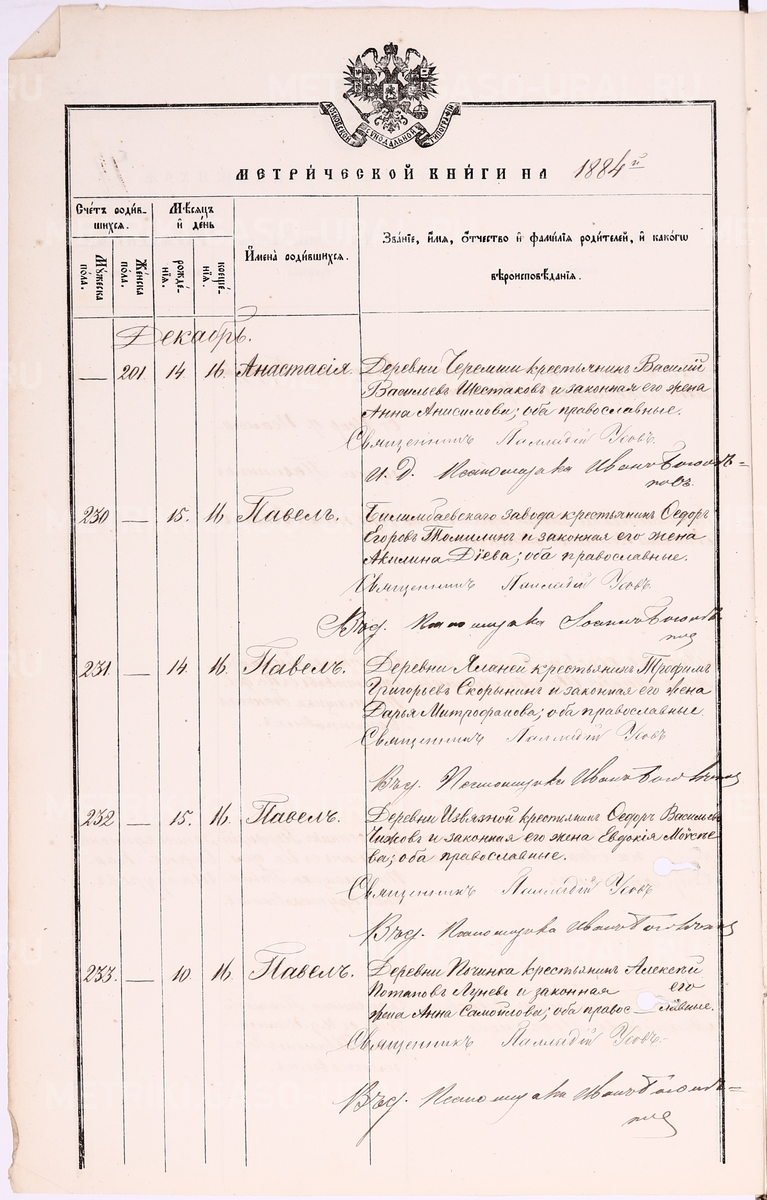 МОСКОВСКОЙ СѴНОДАЛЬНОЙ ТИПОГРАФІИ
МЕТРИ́ЧЕСКОЙ КНИ́ГИ НА 1884й
Сче́тъ роди́в-
шихся.
Мꙋжеска
по́ла.
Же́нска
по́ла.
Мѣ́сяцъ
и҆ де́нь
рожде́-
нїя.
креще́-
нїя.
И҆мена̀ роди́вшихся.
Зва́нїе, и҆́мя, ѻ҆́тчество и҆ фами́лїя роди́телей, и҆ како́гѡ
вѣроисповѣ́данїя.
Декабрь.
— 201. 14. 16. Анастасія. Деревни Черемши крестьянинъ Василій
Васильевъ Шестаковъ и законная его жена
Анна Анисимова; оба православные.
Священникъ Палладій Усовъ.
И. Д. Псаломщика Иванъ
230 — 15. 16 Павелъ. Билимбаевскаго завода крестьянинъ Ѳедоръ
Егоровъ Томилинъ и законная его жена
Акилина Діева; оба православные.
Священникъ Палладій Усовъ.
Псаломщика
231. — 14. 16. Павелъ. Деревни Яланей крестьянинъ Трофимъ
Григорьевъ Скорынинъ и законная его жена
Дарья Митрофанова; оба православные.
Священникъ Палладій Усовъ
Псаломщика Иванъ
232 — 15. 16. Павелъ. Деревни Извязной крестьянинъ Ѳедоръ Васильевъ
Чижовъ и законная его жена Евдокія Моѵсѣе
ва; оба православные.
Священникъ Палладій Усовъ
Псаломщика Иванъ
233. — 10. 16. Павелъ. Деревни Починка крестьянинъ Алексѣй
Потаповъ Луневъ и законная его
жена Анна Самойлова; оба правос— лавные.
Священникъ Палладій Усовъ.
Псаломщика Иванъ